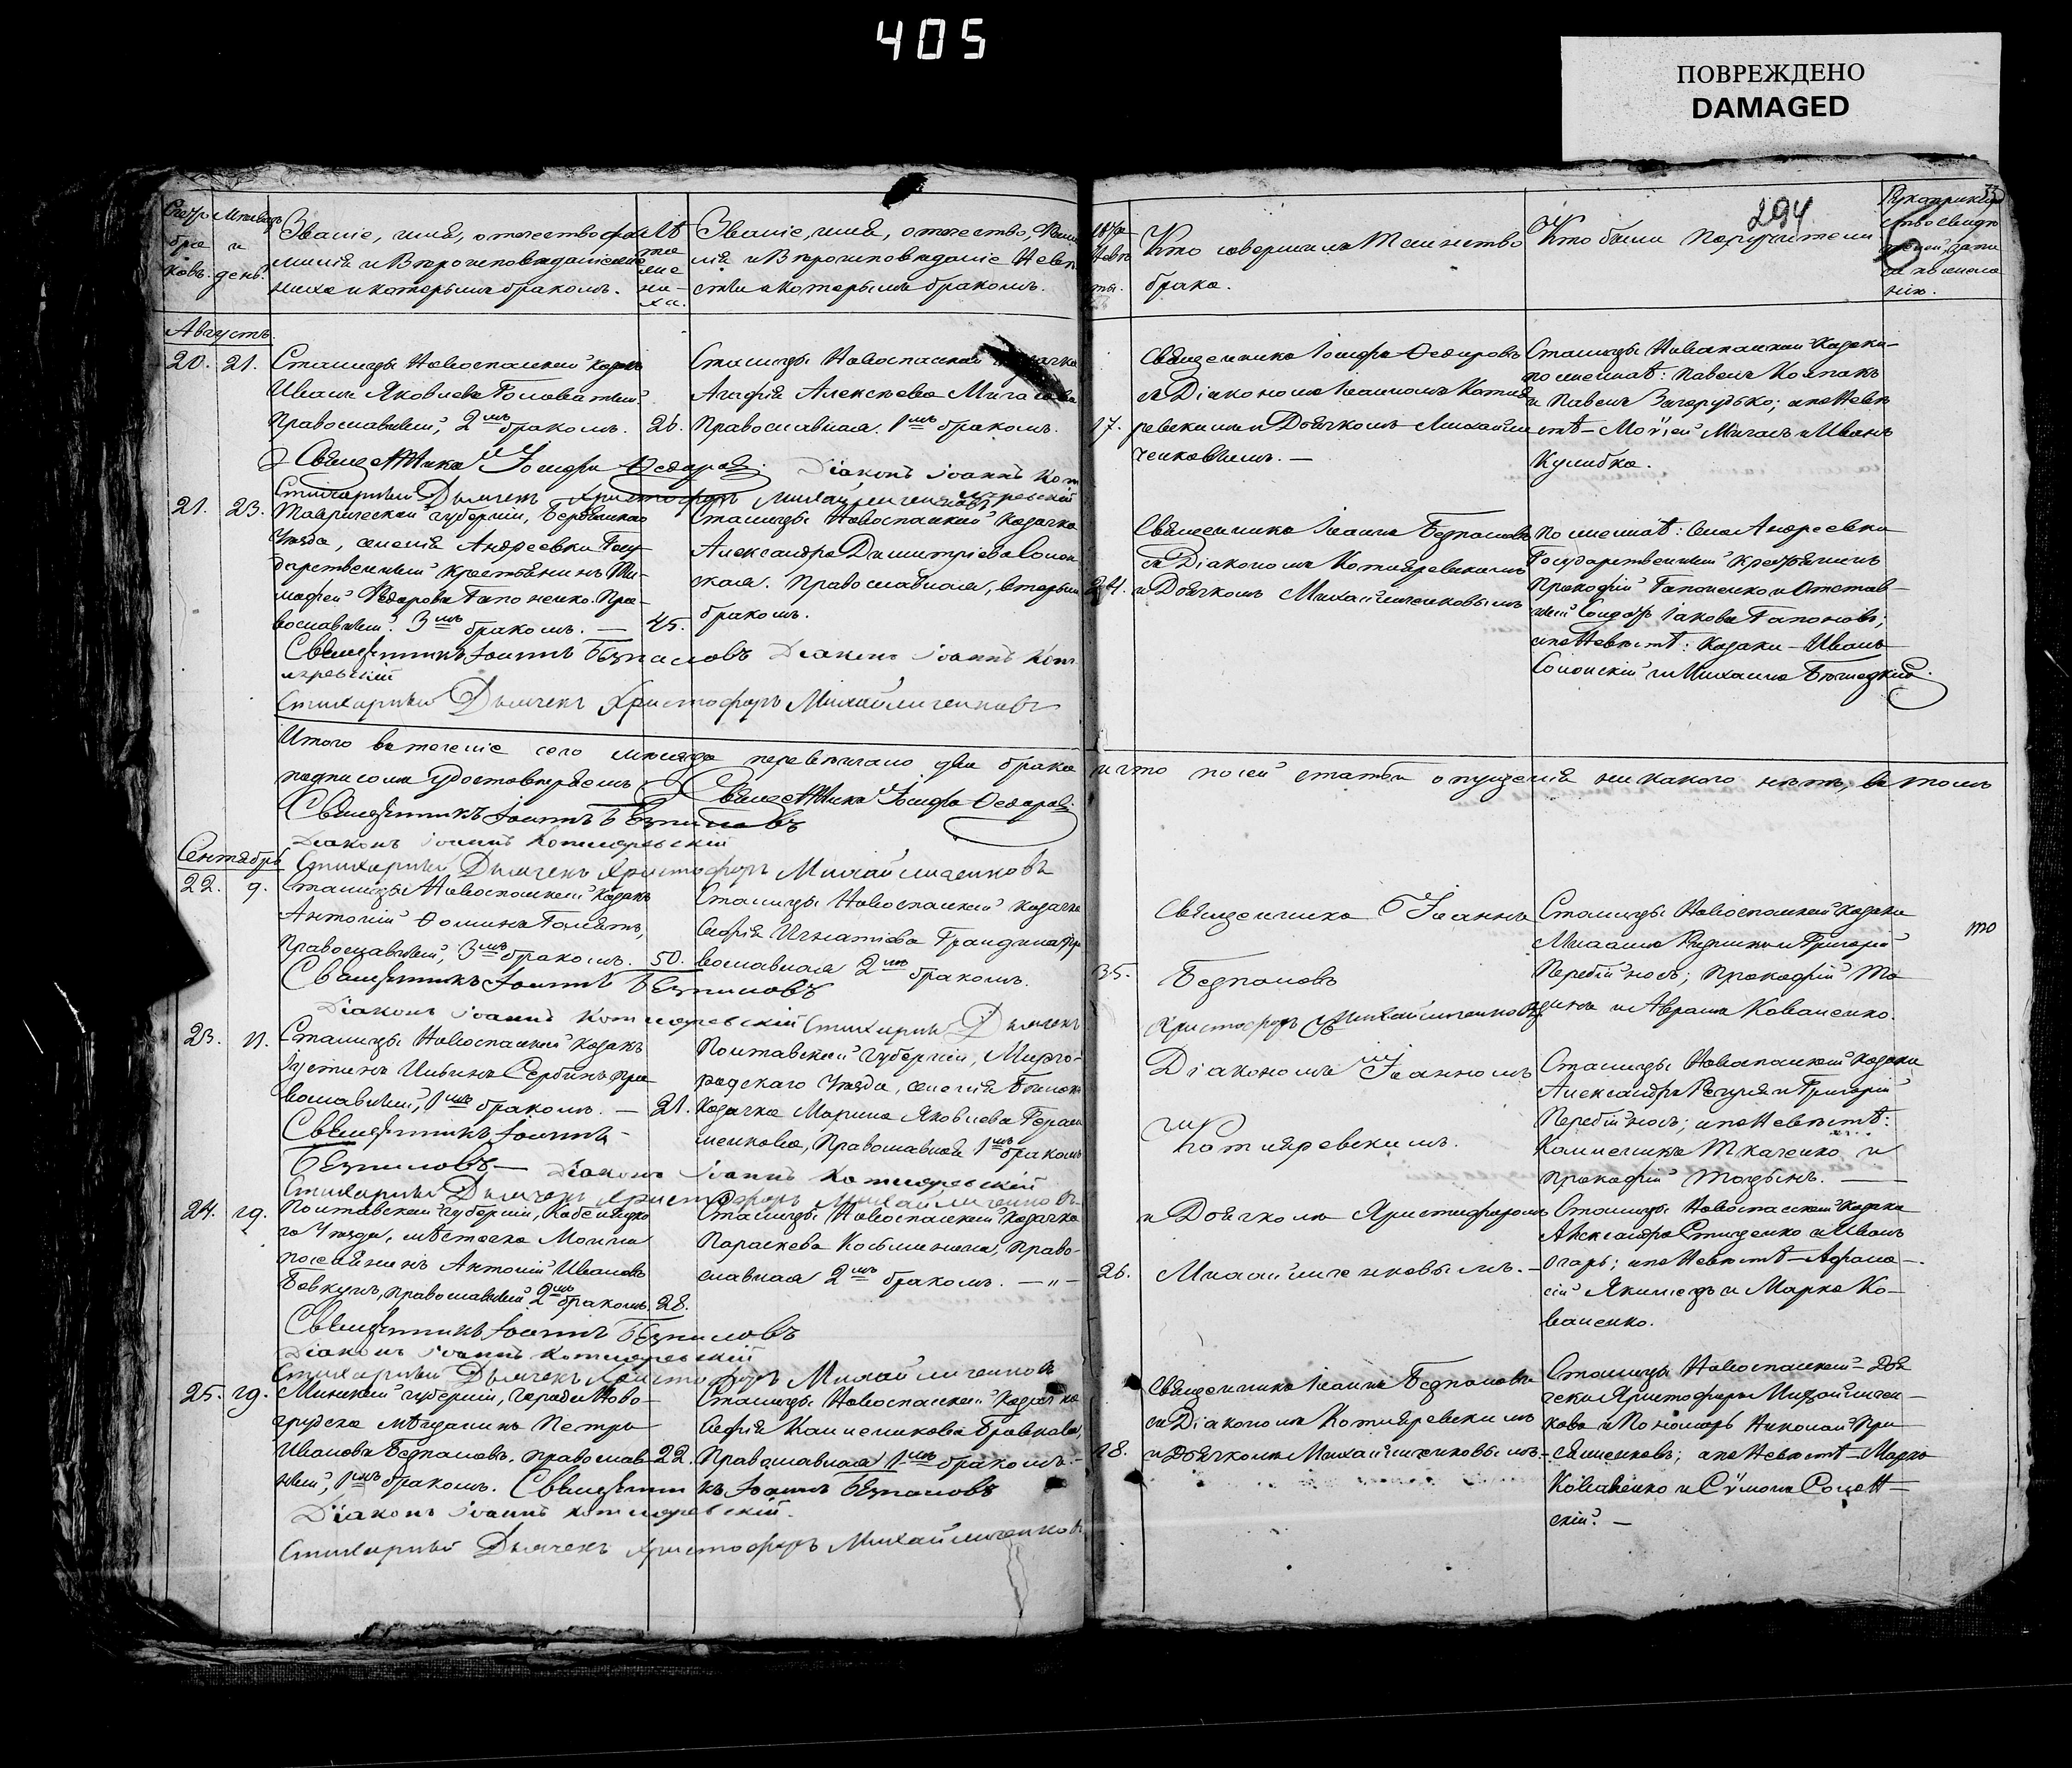 405
ПОВРЕЖДЕНО
DAMAGED
294
Счетъ Мѣсяцъ
бра и
ковъ. день.
Званіе, имя, отечество, фа
милія и Вѣроисповѣданіе же
ниха и которымъ бракомъ.
Лѣ
та
же
ни
ха.
Званіе, имя, отечество, Фами
лія и Вѣроисповѣданіе Невѣ
сты и которымъ бракомъ.
Невѣ
сты.
Кто совершилъ Таинство
брака.
Кто были Поручители
Августъ.
20. 21.
Станицы Новоспаской козакъ
Иванъ Яковлевъ Головатый
Православный, 2мъ бракомъ. 26.
Станицы Новоспаской козачка
Агафія Алексѣева
Православная. 1мъ бракомъ.
17.
Священникъ Іосифъ Ѳедоровъ
съ Діакономъ Іоанномъ Котля
ревскимъ и Дьячкомъ Михайли
ченковымъ. —
Станицы Новоспаской Козаки—
по женихѣ: Павелъ Колпакъ
и Павелъ Загорудько; по Невѣ
стѣ — Моѵсей Мигаль и Иванъ
Кулибка.
Священникъ Іосифъ Ѳедоровъ. Діаконъ Іоаннъ Кот
ляревскій
Стихарный Дьячекъ Христофоръ Михайличенковъ
21. 23.
Таврической губерніи, Бердянскаго
Уѣзда, селенія Андреевки Госу
дарственный крестьянинъ Ти-
мофей Ѳедоровъ Гапоненко. Пра-
вославный. 3мъ бракомъ. — 45.
Станицы Новоспаской Козачка
Александра Димитріева Солон
ская. Православная, вторымъ
бракомъ.
24.
Священникъ Іоаннъ Безпаловъ
съ Діакономъ Котляревскимъ
и Дьячкомъ Михайличенковымъ
По женихѣ: Села Андреевки
Государственный Крестьянинъ
Прокофій Гапоненко и Отстав-
ный Солдатъ Іаковъ Гапоновъ;
по Невѣстѣ: Козаки — Иванъ
Солонскій и Михаилъ
Священникъ Іоаннъ Безпаловъ Діаконъ Іоаннъ Кот-
ляревскій
Стихарный Дьячекъ Христофоръ Михайличенковъ
Итого въ теченіе сего мѣсяца перевѣнчано два брака и что по сей статьи опущенія никакого нѣтъ, въ томъ
подписомъ удостовѣряемъ Священникъ Іосифъ Ѳедоровъ.
Священникъ Іоаннъ Безпаловъ
Діаконъ Іоаннъ Котляревскій
Стихарный Дьячекъ Христофоръ Михайличенковъ
Сентябрь
22. 9.
Станицы Новоспаской Козакъ
Антоній Ѳоминъ
Православный, 3мъ бракомъ. 50.
Станицы Новоспаской козачка
Софія Игнатіева Пра
вославная 2мъ бракомъ.
35.
Священникъ Іоаннъ
Безпаловъ
Станицы Новоспаской козаки
Михаилъ и Григорій
Перебійносъ; Прокофій
и Аврамъ Коваленко.
Священникъ Іоаннъ Безпаловъ
Діаконъ Іоаннъ Котляревскій Стихарный Дьячекъ
Христофоръ Михайличенковъ
23. 11.
Станицы Новоспаской козакъ
Іустинъ Ильинъ Сербинъ пра
вославный, 1мъ бракомъ. — 21.
Полтавской губерніи, Мирго-
родскаго Уѣзда, селенія
Козачка Марина Яковлева Гераси
менкова, Православная 1мъ бракомъ
Діакономъ Іоанномъ
Котляревскимъ.
Станицы Новоспаской козаки
Александръ и Григорій
Перебійносъ; по Невѣстѣ:
Калленикъ Ткаченко и
Прокофій
Священникъ Іоаннъ
Безпаловъ — Діаконъ Іоаннъ Котляревскій
Стихарный Дьячекъ Христофоръ Михайличенковъ
24. 19.
Полтавской губерніи, Кобеляцка
го Уѣзда, мѣстечка
поселянинъ Антоній Ивановъ
Бовкунъ, православный 2мъ бракомъ. 28.
Станицы Новоспаской Козачка
Параскева Косьмина, Право-
славная 2мъ бракомъ. — " —
26.
и Дьячкомъ Христофоромъ
Михайличенковымъ. —
Станицы Новоспаской Козаки
Александръ Стиценко и Иванъ
по Невѣстѣ — Афана-
сій и Марко Ко-
валенко.
Священникъ Іоаннъ Безпаловъ
Діаконъ Іоаннъ Котляревскій
Стихарный Дьячекъ Христофоръ Михайличенковъ
25. 19.
Минской губерніи, города Ново-
грудска мѣщанинъ Петръ
Ивановъ Безпаловъ, православ- 22.
ный, 1мъ бракомъ.
Станицы Новоспаской Козачка
Софія Калленикова
Православная 1мъ бракомъ. —
18.
Священникъ Іоаннъ Безпаловъ
съ Діакономъ Котляревскимъ
и Дьячкомъ Михайличенковымъ. —
Станицы Новоспаской — Дья
чекъ Христофоръ Михайличен-
ковъ и Пономарь Николай
по Невѣстѣ — Марко
Коваленко и Сѵмонъ
скій. —
Священникъ Іоаннъ Безпаловъ
Діаконъ Іоаннъ Котляревскій.
Стихарный Дьячекъ Христофоръ Михайличенковъ